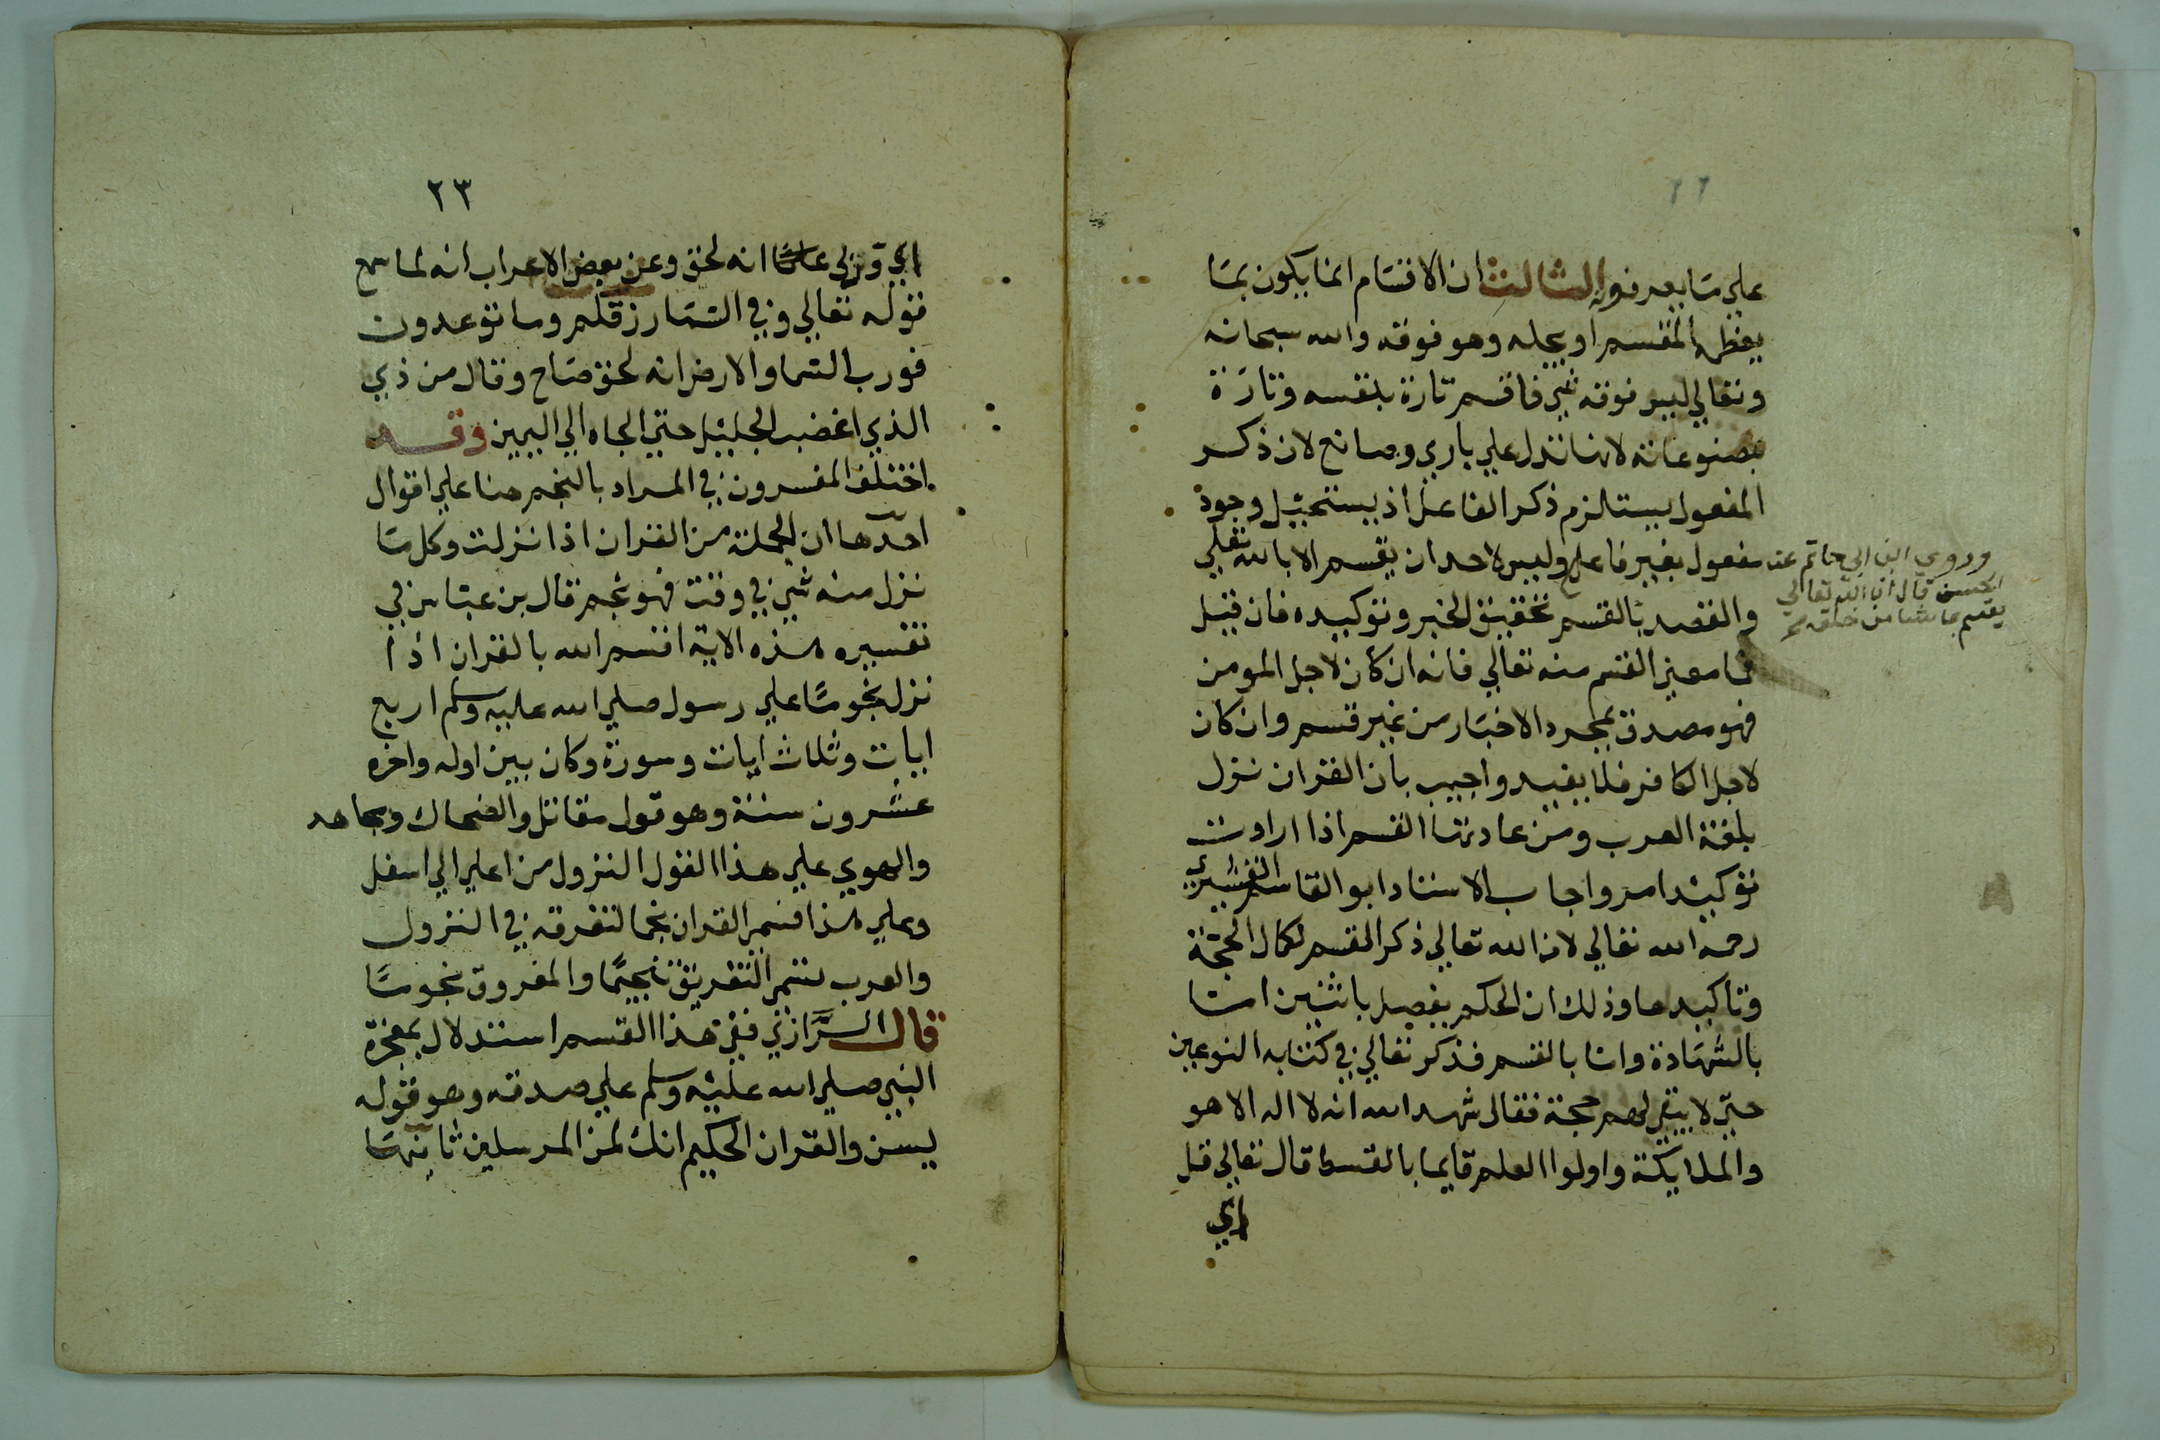 علي ما يعرفونه الثالث ان الاقسام انما يكون بما
يعظمه المقسم او يجله وهو فوقه والله سبحانه
وتعالي ليس فوقه شي فاقسم تارة بنفسه وتارة
بمصنوعاته لانها تدل علي باري وصانع لان ذكر
المفعول يستلزم ذكر الفاعل اذ يستحيل وجود
مفعول بغير فاعل وليس لاحد ان يقسم الا بالله تعالي
وروي ابن ابي حاتم عن
الحسن قال ان الله تعالي
يقسم بما شا من خلقه
والقصد بالقسم تحقيق الخبر وتوكيده فان قيل
فما معني القسم منه تعالي فانه ان كان لاجل المومن
فهو مصدق بمجرد الاخبار من غير قسم وان كان
لاجل الكافر فلا يفيد واجيب بان القران نزل
بلغة العرب ومن عادتها القسم اذا ارادت
توكيد امر واجاب الاستاد ابو القاسم القشيري
رحمه الله تعالي لان الله تعالي ذكر القسم لكمال الحجة
وتاكيدها وذلك ان الحكم يفصل باثنين اما
بالشهادة واما بالقسم فذكر تعالي في كتابه النوعين
حتي لا يبقي لهم حجة فقال شهد الله انه لا اله الا هو
والملايكة واولوا العلم قايما بالقسط قال تعالي قل
اي
٢٣
اي وربي انه لحق وعن بعض الاعراب انه لما سمع
قوله تعالي وفي السما رزقكم وما توعدون
فورب السما والارض انه لحق صاح وقال من ذي
الذي اغضب الجليل حتي الجاه الي اليمين وقد
اختلف المفسرون في المراد بالنجم هنا علي اقوال
احدها ان الجملة من القران اذا نزلت وكل ما
نزل منه شي في وقت فهو نجم قال بن عباس في
تفسيره هذه الاية اقسم الله بالقران اذا
نزل نجوما علي رسول صلي الله عليه وسلم اربع
ايات وثلاث ايات وسورة وكان بين اوله واخره
عشرون سنة وهو قول مقاتل والضحاك ومجاهد
والهوي علي هذا القول النزول من اعلي الي اسفل
وعلي هذا فسمي القران نجما لتفرقه في النزول
والعرب تسمي التفريق تنجيما والمفروق نجوما
قال الرازي ففي هذا القسم استدلال بمعجزة
النبي صلي الله عليه وسلم علي صدقه وهو قوله
يس والقران الحكيم انك لمن المرسلين ثانيها